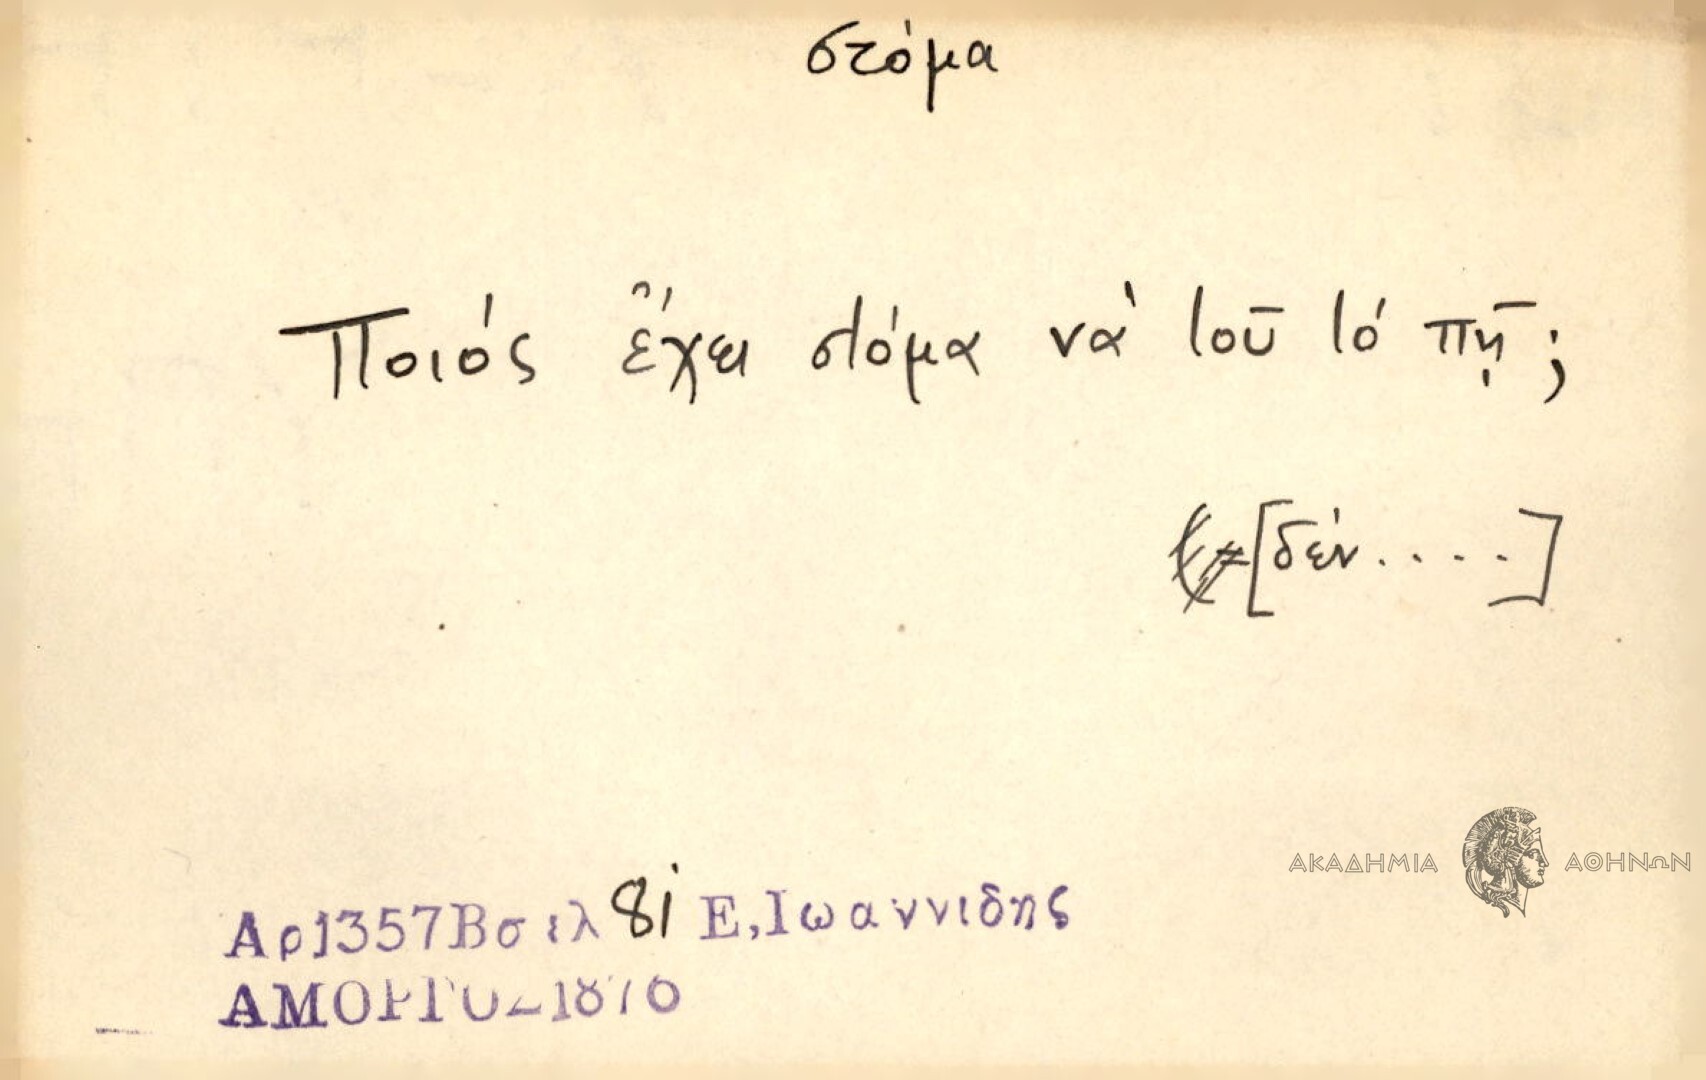 στόμα
Ποιός ἔχει στόμα νὰ τοῦ τό πῇ;
[δέν....]
Αρ1357Βσελ 81 Ε,Ιωαννιδης
ΑΜΟΡΓΟΣ1876
ΑΚΑΔΗΜΙΑ ΑΘΗΝΩΝ